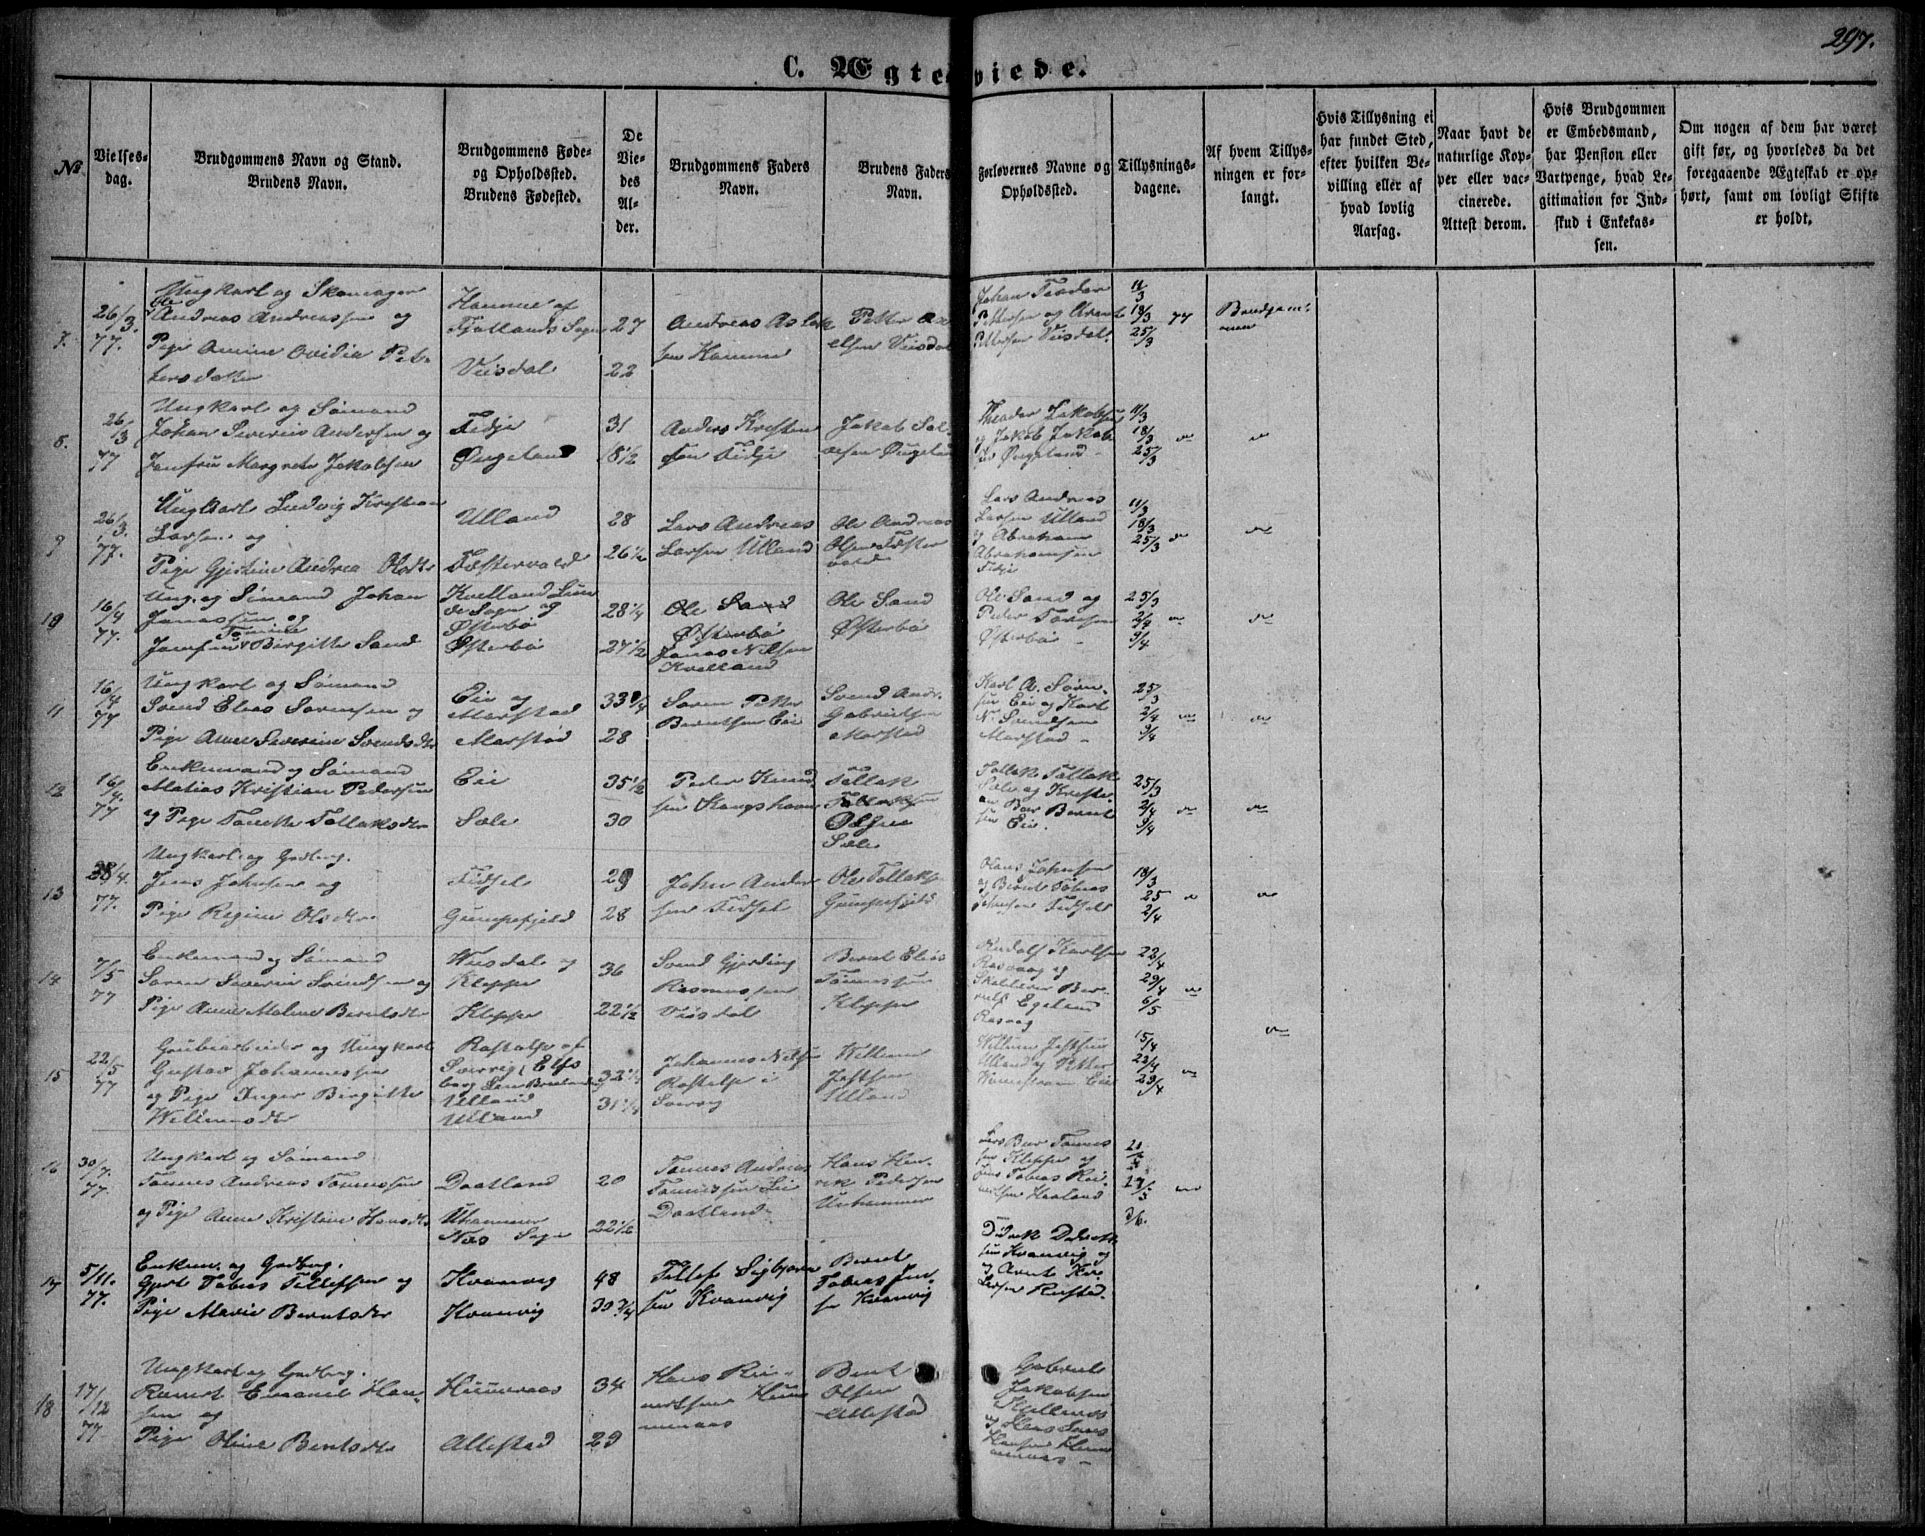 297.
C. Ægteviede.
No
Vielses-
dag.
Brudgommens Navn og Stand.
Brudens Navn.
Brudgommens Føde-
og Opholdssted.
Brudens Fødested.
De
Vie-
des
Al-
der.
Brudgommens Faders
Navn.
Brudens Faders
Navn.
Forlovernes Navne og
Opholdssted.
Tillysnings-
dagene.
Af hvem Tillys-
ningen er for-
langt.
Hvis Tillysning ei
har fundet Sted,
efter hvilken Be-
villing eller af
hvad lovlig
Aarsag.
Naar havt de
naturlige Kop-
per eller vac-
cinerede.
Attest derom.
Hvis Brudgommen
er Embedsmand,
har Pension eller
Vartpenge, hvad Le-
gitimation for Ind-
skud i Enkekas-
sen.
Om nogen af dem har været
gift før, og hvorledes da det
foregaaende Ægteskab er op-
hørt, samt om lovligt Skifte
er holdt.
7.
26/3
77.
Ungkarl og Skomager
Ole
Andreas Andreassen og
Pige Amine Ovidia Pet-
tersdatter
Hamme af
Fjotlands Sogn
Veisdal
27
22
Andreas Aslak
sen Hamme
Petter Ax
elsen Veisdal
Johan Teodor
Pettersen og Arent
Pettersen Veisdal.
11/3
18/3 77
25/3
Brudgom-
men
8.
26/3
77
Ungkarl og Sømand
Johan Severin Andersen og
Jomfru Margrete Jakobsen
Fedje
Øingeland
31
18 1/2
Anders Kristen
sen Fidje
Jakob Sal
vesen Øingeland
Theodor Jakobsen
og Jakob Jakob
sen Øingeland
11/3
18/3
25/3
9
26/3
77.
Ungkarl Ludvig Kristian
Larsen og
Pige Gjertine Andrea Olsdtr
Ulland
Fæstervold
28
26 1/2
Lars Andreas
Larsen Ulland
Ole Andreas
Olsen Fæster
vold
Lars Andreas
Larsen Ulland
og Abraham
Abrahamsen
Fidje
11/3
18/3
25/3
10
16/4
77.
Ung. og Sømand Johan
Jonassen og
Jomfru Birgitte Sand
Kvelland Lun
de Sogn og
Østerbø
Østerbø
28 1/4
27 1/2
Ole Sand
Østerbø
Jonas Nilsen
Kvelland
Ole Sand
Østerbø
Ole Sand og
Peder Tønnesen
Østerbø
25/3
2/4
9/4
11
16/4
77
Ungkarl og Sømand
Svend Elias Sørensen og
Pige Anne Severine Svendsdtr
Eie og
Marstad
Marstad
33 3/4
28
Søren Petter
Berntsen Eie
Svend Andr.
Gabrielsen
Marstad
Karl A. Søren-
sen Eie og Karl
N. Svendsen
Marstad
25/3
2/4
9/4
12
16/4.
77
Enkemand og Sømand
Matias Kristian Pedersen
og Pige Tomine Tollaksdtr
Eie
Sæle
35 1/2
30
Peder Knud
sen Stangshavn
Tollak
Tollaksen
Sæle
Tollak Tollak
Sæle og Kristi
an Ber Bernt
sen Eie.
25/3
2/4
9/4
13
28/4.
77.
Ungkarl og Gaardbrug.
Jens Johnsen og
Pige Regine Olsdtr
Fidsel
Gumpefjeld
29
28
John Ander
sen Fidsel
Ole Tollaks
Gumpefjeld
Olaus Johnsen
og Bernt Tobias
Johnsen Fidsel
18/3
25
2/4
14
7/5
77
Enkemand og Sømand
Søren Severin Svendsen og
Pige Anne Malene Berntsdtr
Veisdal og
Kleppe
Kleppe
36
22 1/2
Svend Gjerding
Rasmussen
Veisdal
Bernt Elias
Tønnessen
Kleppe
Rudolf Karlsen
Rasvaag og
Egeland
Rasvaag
22/4
29/4
6/5
15
22/5
77
Grubearbeider og Ungkarl
Gustav Johannessen
og Pige Inger Birgitte
Willumsdtr
Sverrig, Elfs
borg Len
Ulland
Ulland
32 1/4
31 1/4
Johannes Nilsen
Sverrig
Willum
Jestsen
Ulland
Willum Jestsen
Ulland og Petter
Eie
15/4
22/4
29/4
16
30/7.
77.
Ungkarl og Sømand
Tønnes Andreas Tønnessen
og Pige Anne Kristine Hansdtr
Daatland
Uhammer
Næs Sogn
20
22 1/2
Tønnes Andreas
Tønnessen Lie
Daatland
Hans Hen-
rik Pedersen
Unhammer
Lars Ber Tønnes
sen Kleppe og
Jens Tobias Rei-
nertsen Haaland
27/5
3/6.
17
5/11.
77.
Enkem. og Gaardbrug.
Gjert Tobias Tellefsen og
Pige Marie Berntsdtr
Kvanvig
Kvanvig
48
30 3/4
Tellef Sigbjørn
sen Kvanvig
Bernt
Tobias Jen-
sen Kvanvig
Didrik Didrik
sen Kvanvig og
og Arnt
Rustad.
18
17/12
77
Ungkarl og Gaardbrug.
Reinert Emanuel Han-
sen og
Pige Oline Berntsdtr
Hummeraas
Allestad
34
29
Hans Rei-
nertsen Hum
meraas
Bent
Olsen
Allestad
Gabriel
Jakobsen
og Hans
Hansen Hum
meraas